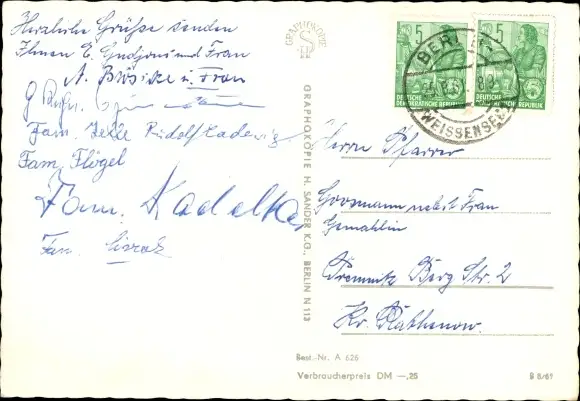 Herzliche Grüße senden
Ihnen E. Gudjons und Frau
A. Bösicke u. Frau
G
Fam. Zelle Rudolf Ladewig
Fam. Flögel
Fam. Kadelka
Fam.
GRAPHOKOPIE
GRAPHOKOPIE H. SANDER K.G., BERLIN N 113
5
DEUTSCHE DEMOKRATISCHE REPUBLIK
5
DEUTSCHE DEMOKRATISCHE REPUBLIK
BERLIN
WEISSENSEE
Herrn Pfarrer
Goosmann nebst Frau
Gemahlin
Premnitz Berg Str. 2
Kr. Rathenow.
Best.-Nr. A 626
Verbraucherpreis DM —,25
B 6/61